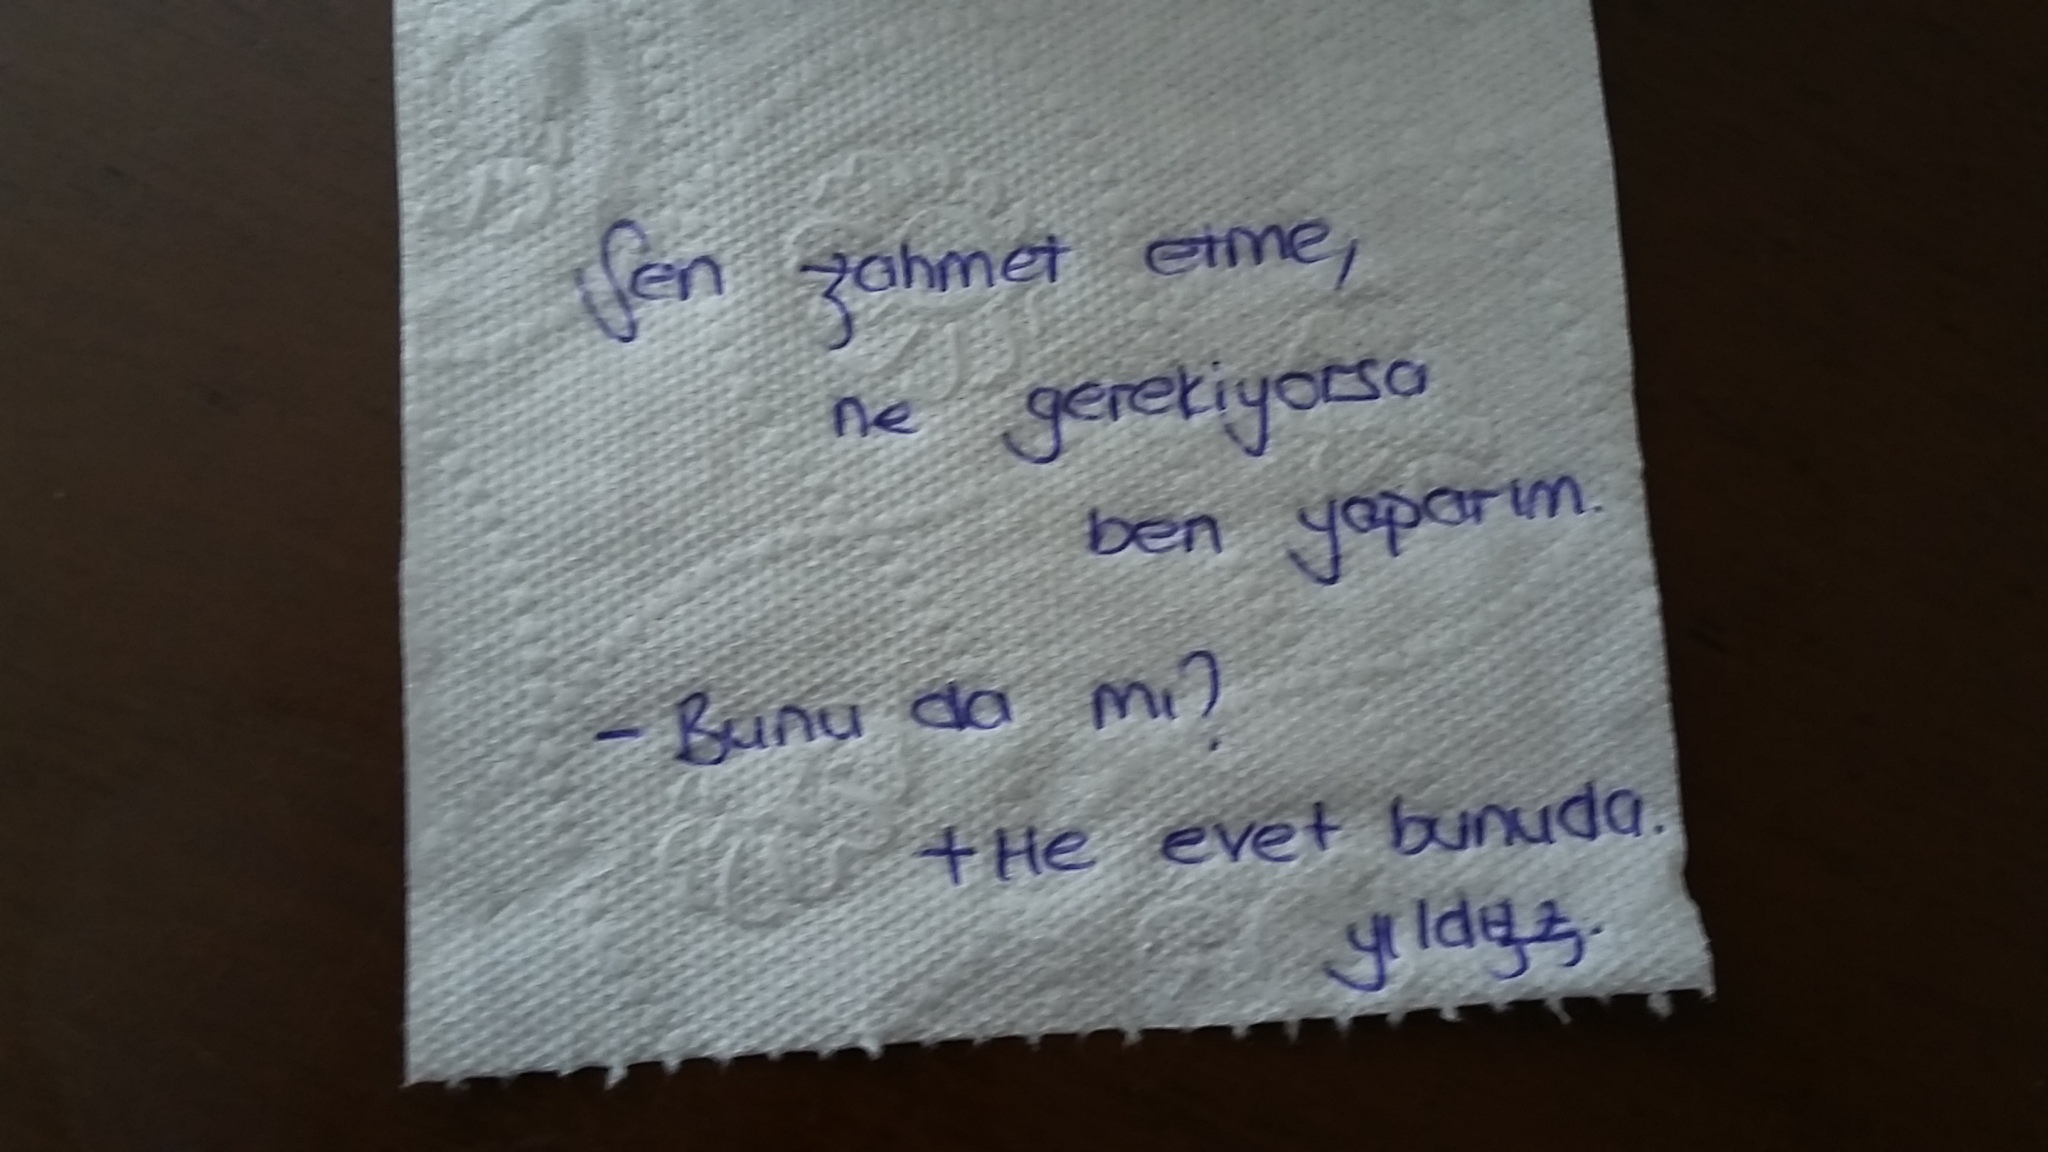 Sen zahmet etme,
ne gerekiyorsa
ben yaparım.
- Bunu da mı?
+ He evet bunuda.
yıldız.